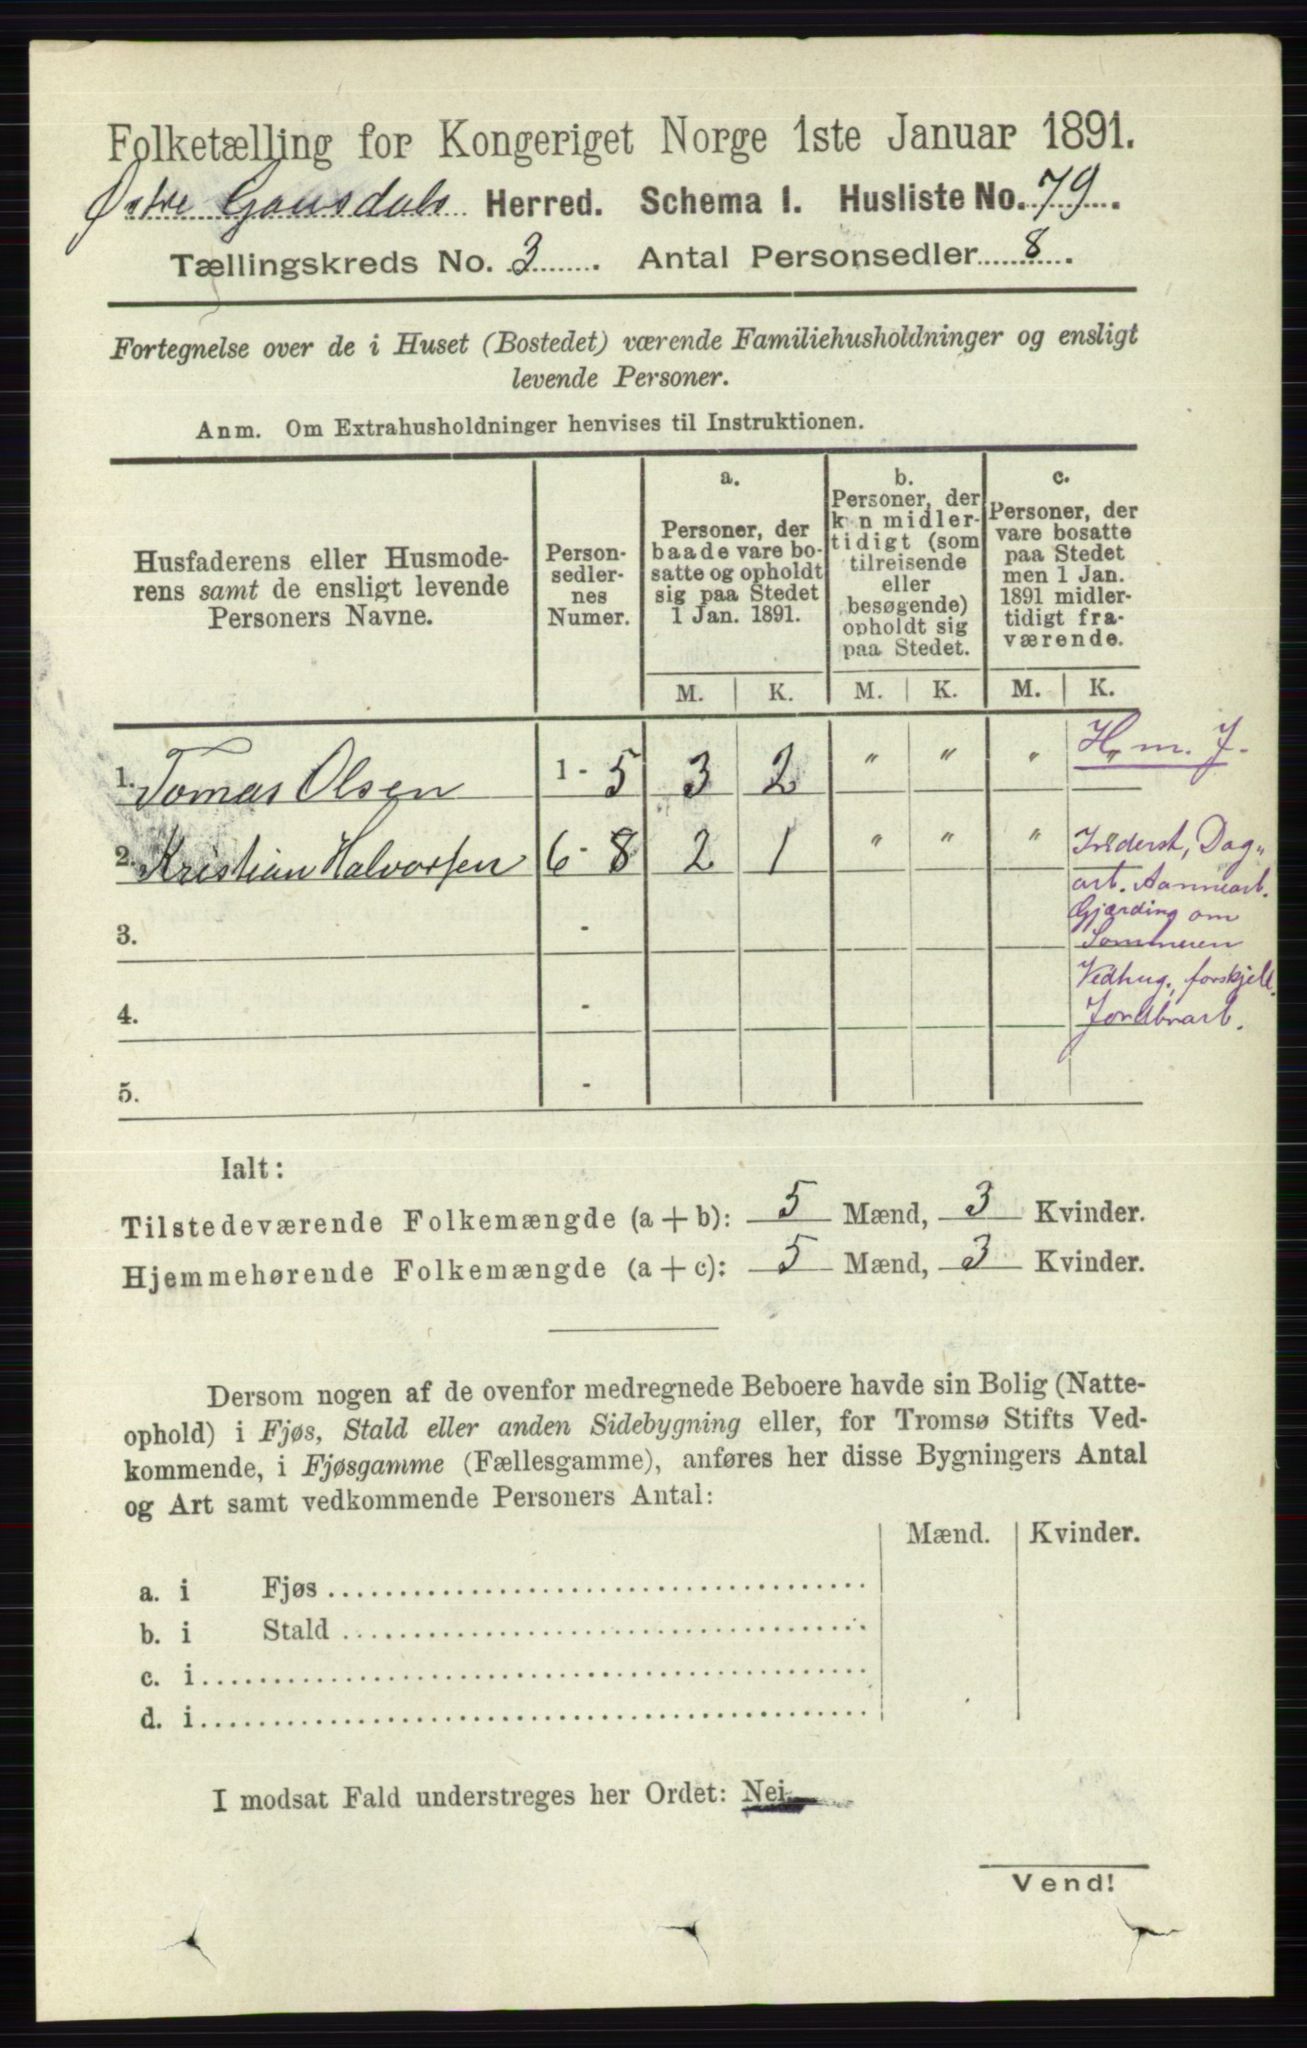 Folketælling for Kongeriget Norge 1ste Januar 1891.
Østre Gausdals Herred. Schema I. Husliste No. 79.
Tællingskreds No. 3. Antal Personsedler 8.
Fortegnelse over de i Huset (Bostedet) værende Familiehusholdninger og ensligt
levende Personer.
Anm. Om Extrahusholdninger henvises til Instruktionen.
Husfaderens eller Husmode-
rens samt de ensligt levende
Personers Navne.
Person-
sedler-
nes
Numer.
a.
Personer, der
baade vare bo-
satte og opholdt
sig paa Stedet
1 Jan. 1891.
b.
Personer, der
kun midler-
tidigt (som
tilreisende
eller
besøgende)
opholdt sig
paa Stedet.
c.
Personer, der
vare bosatte
paa Stedet
men 1 Jan.
1891 midler-
tidigt fra-
værende.
M. K. M. K. M. K.
1. Tomas Olsen 1 - 5 3 2 " " " H. m. J.
2. Kristian Halvorsen 6 - 8 2 1 " " " Dag"
art.
Gjærding om
Sommeren
Vedhug., forskjell.
Jordbrarb.
3. -
4. -
5. -
Ialt:
Tilstedeværende Folkemængde (a + b): 5 Mænd, 3 Kvinder.
Hjemmehørende Folkemængde (a + c): 5 Mænd, 3 Kvinder.
Dersom nogen af de ovenfor medregnede Beboere havde sin Bolig (Natte-
ophold) i Fjøs, Stald eller anden Sidebygning eller, for Tromsø Stifts Ved-
kommende, i Fjøsgamme (Fællesgamme), anføres her disse Bygningers Antal
og Art samt vedkommende Personers Antal:
Mænd. Kvinder.
a. i Fjøs
b. i Stald
c. i
d. i
I modsat Fald understreges her Ordet: Nei.
Vend!